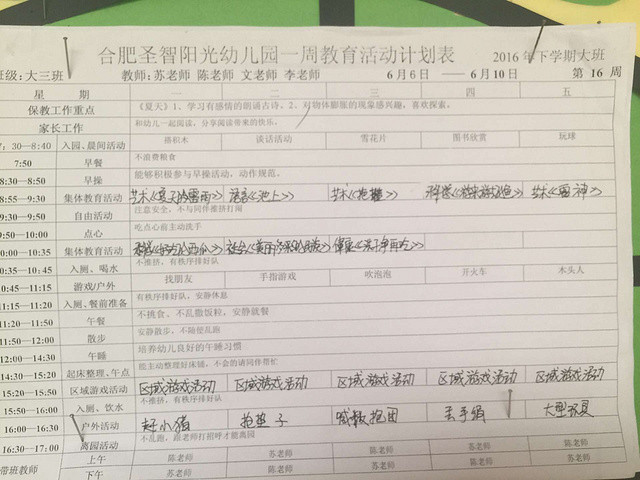 合肥圣智阳光幼儿园一周教育活动计划表 2016年下学期大班
班级:大三班 教师:苏老师 陈老师 文老师 李老师 6月6日——6月10日 第16周
星 期 一 二 三 四 五
保教工作重点 《夏天》1、学习有感情的朗诵古诗。2、对物体膨胀的现象感兴趣,喜欢探索。
家长工作 和幼儿一起阅读,分享阅读带来的快乐。
7:30—8:40 入园、晨间活动 搭积木 谈话活动 雪花片 图书欣赏 玩球
7:50 早餐 不浪费粮食
8:30—8:50 早操 能够积极参与早操活动,动作规范。
8:55—9:30 集体教育活动 艺术《夏天的雷雨》 语言《池上》 艺术 科学 艺术《雷神》
9:30—9:50 自由活动 注意安全,不与同伴推挤打闹
9:50—10:00 点心 吃点心前主动洗手
10:00—10:35 集体教育活动 科学 社会 健康
10:35—10:45 入厕、喝水 不推挤,有秩序排好队
10:45—11:15 游戏/户外 找朋友 手指游戏 吹泡泡 开火车 木头人
11:15—11:20 入厕、餐前准备 有秩序排好队,安静休息
11:20—11:50 午餐 不挑食、不乱撒饭粒,安静就餐
11:50—12:00 散步 安静散步,不随便乱跑
12:00—14:30 午睡 培养幼儿良好的午睡习惯
14:30—15:20 起床整理、午点 能主动整理好床铺,不会的请同伴帮忙
15:20—15:50 区域游戏活动 区域游戏活动 区域游戏活动 区域游戏活动 区域游戏活动 区域游戏活动
15:50—16:00 入厕、饮水 不推挤,有秩序排好队
16:00—16:30 户外活动 赶小猪 抱垫子 成数抱团 丢手绢 大型玩具
16:30—17:00 离园活动 不乱跑,跟老师打招呼才能离园
带班教师 上午 陈老师 苏老师 陈老师 苏老师 陈老师
下午 苏老师 陈老师 苏老师 陈老师 苏老师